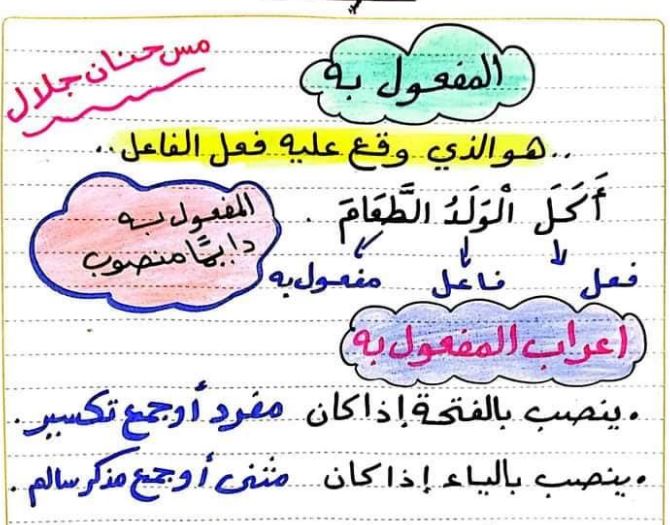 مس حنان جلال
المفعول به
.. هو الذي وقع عليه فعل الفاعل ..
أَكَلَ الْوَلَدُ الطَّعَامَ .
فعل فاعل مفعول به
المفعول به
دايمًا منصوب
اعراب المفعول به
. ينصب بالفتحة إذا كان مفرد أو جمع تكسير .
. ينصب بالياء إذا كان مثنى أو جمع مذكر سالم .